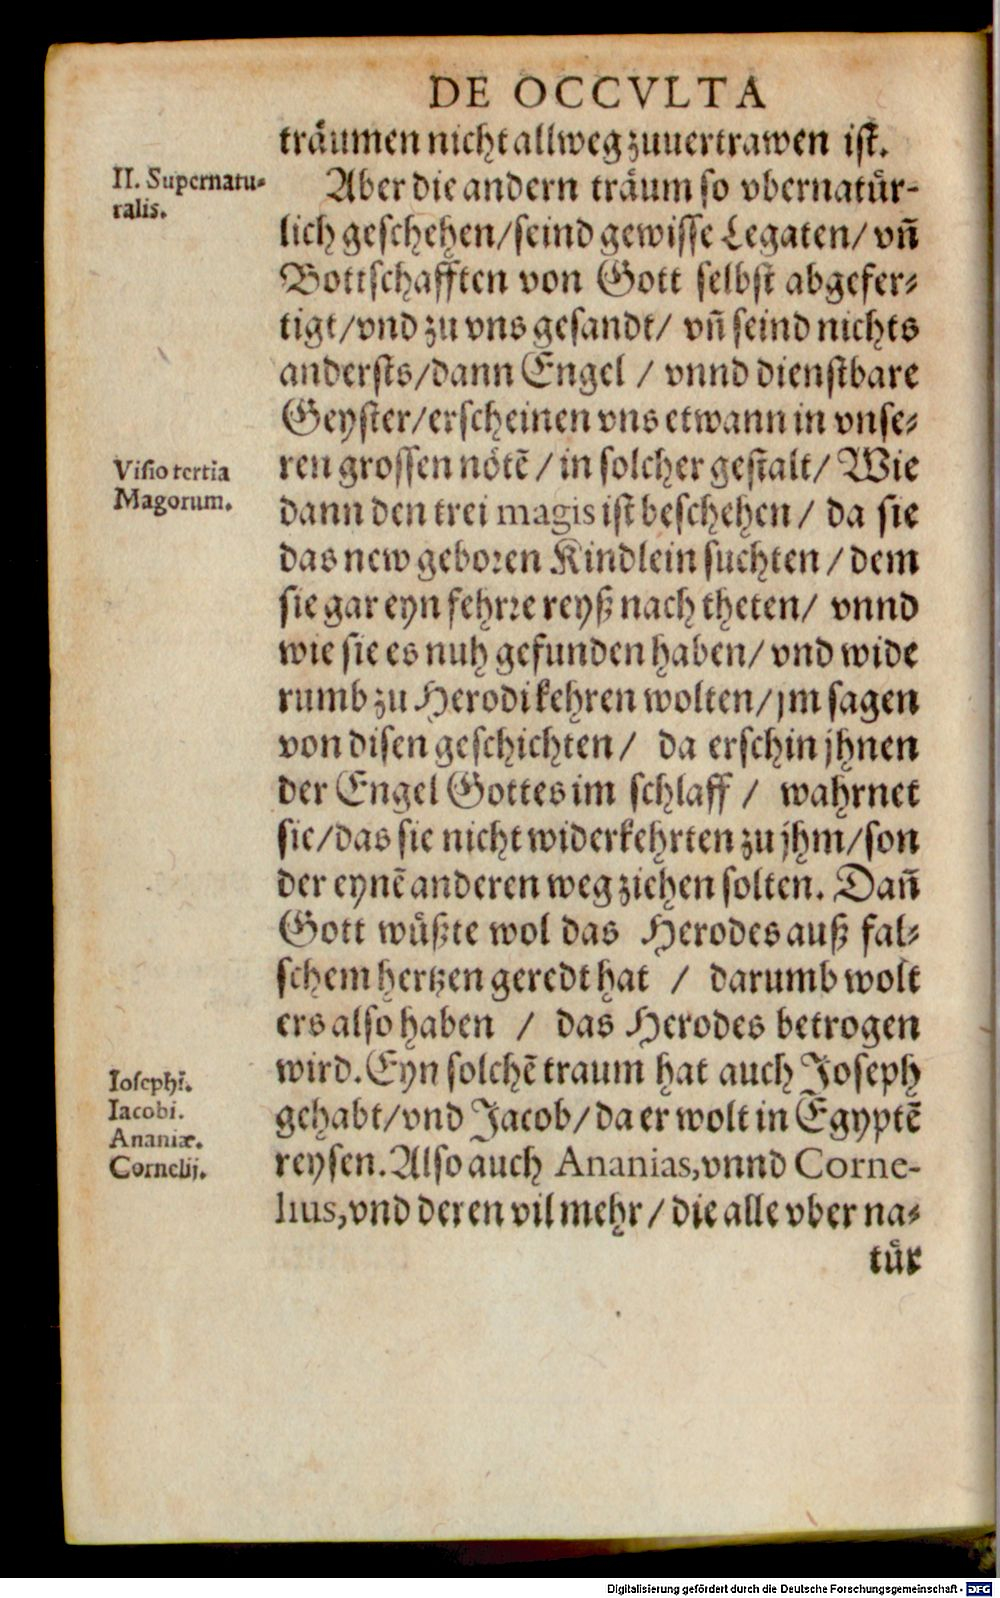 DE OCCVLTA
träumen nicht allweg zuuertrawen ist.
II. Supernatu-
ralis.
Aber die andern träum so vbernatür-
lich geschehen/seind gewisse Legaten/ vñ
Bottschafften von Gott selbst abgefer-
tigt/vnd zu vns gesandt/ vñ seind nichts
andersts/dann Engel / vnnd dienstbare
Geyster/erscheinen vns etwann in vnse-
Visio tertia
Magorum.
ren grossen nötē / in solcher gestalt/ Wie
dann den trei magis ist beschehen/ da sie
das new geboren Kindlein suchten / dem
sie gar eyn fehrre reyß nach theten/ vnnd
wie sie es nuh gefunden haben/ vnd wide
rumb zu Herodi kehren wolten/jm sagen
von disen geschichten/ da erschin jhnen
der Engel Gottes im schlaff / wahrnet
sie/das sie nicht widerkehrten zu jhm/son
der eynē anderen weg ziehen solten. Dañ
Gott wůßte wol das Herodes auß fal-
schem hertzen geredt hat / darumb wolt
ers also haben / das Herodes betrogen
wird. Eyn solchē traum hat auch Joseph
Iosephi.
Iacobi.
Ananiæ.
Cornelij.
gehabt/vnd Jacob/da er wolt in Egyptē
reysen. Also auch Ananias,vnnd Corne-
lius,vnd deren vil mehr/ die alle vber na-
tůr
Digitalisierung gefördert durch die Deutsche Forschungsgemeinschaft - DFG